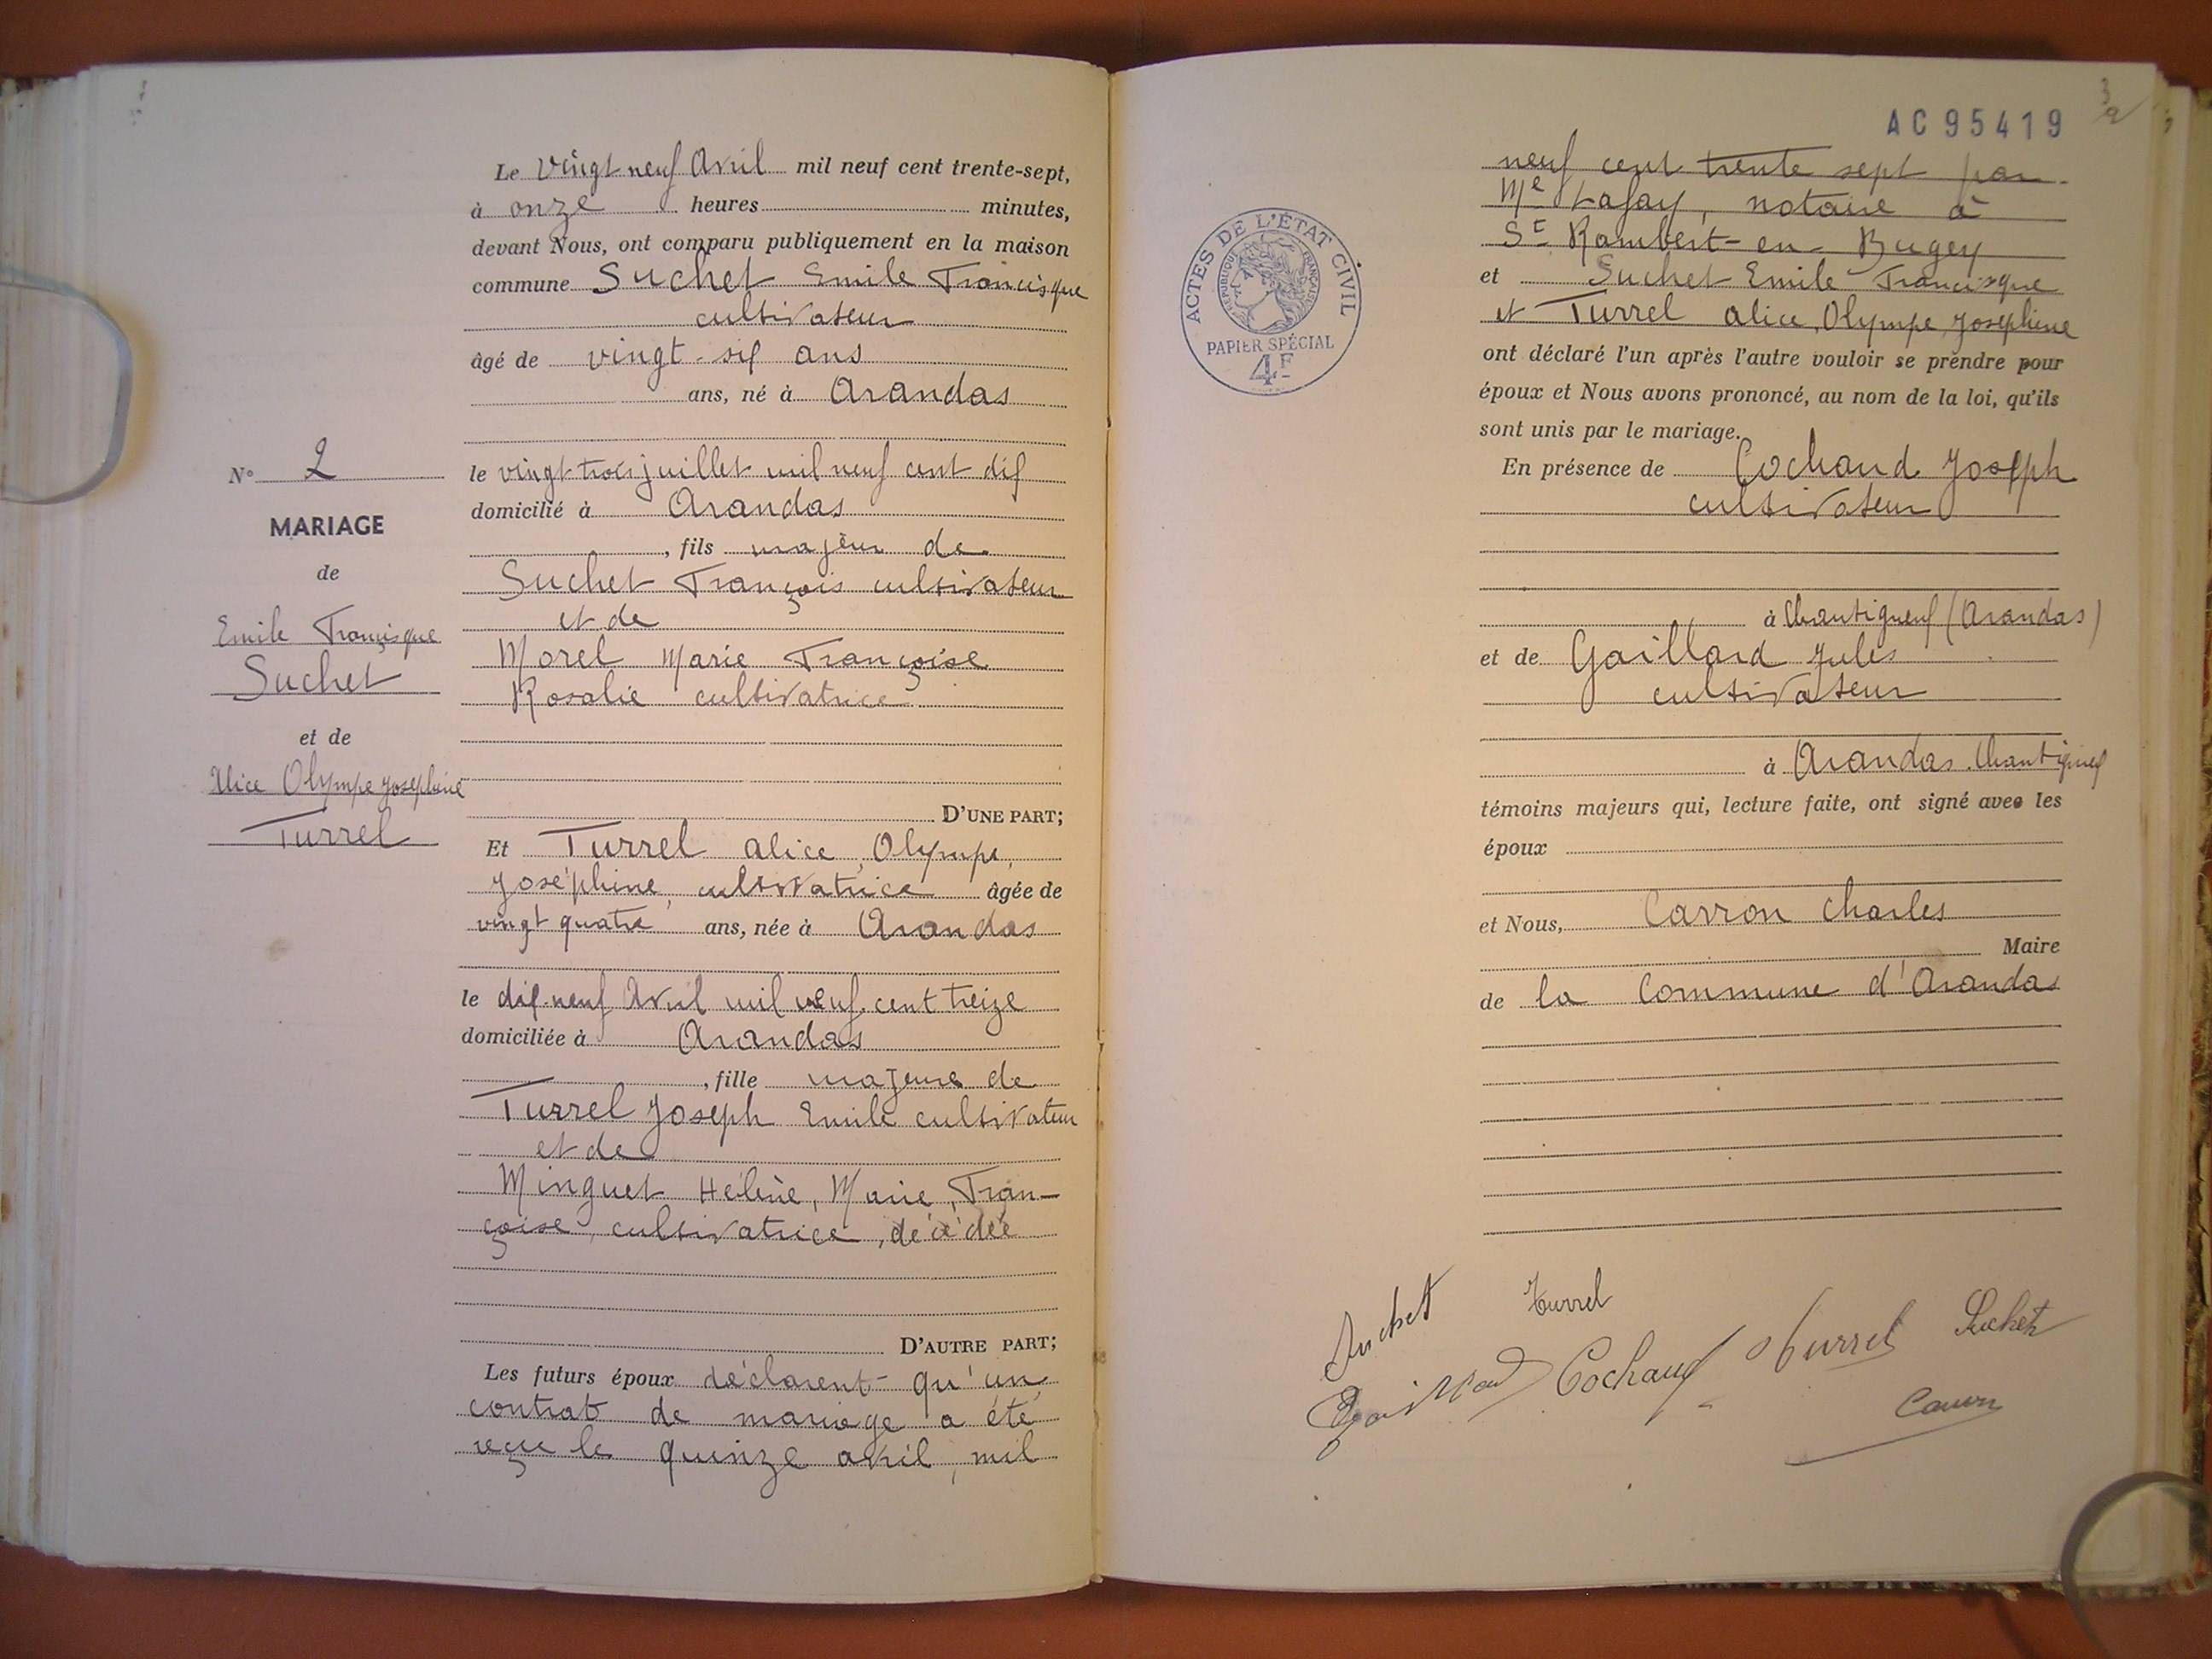 N° 2
MARIAGE
de
Emile Francisque
Suchet
et de
Alice Olympe Joséphine
Turrel
Le vingt neuf Avril mil neuf cent trente-sept,
à onze heures minutes,
devant Nous, ont comparu publiquement en la maison
commune Suchet Emile Francisque
cultivateur
âgé de vingt-six ans
ans, né à Arandas
le vingt trois juillet mil neuf cent dix
domicilié à Arandas
, fils majeur de
Suchet François cultivateur
et de
Morel Marie Françoise
Rosalie cultivatrice
D'UNE PART;
Et Turrel Alice, Olympe,
Joséphine, cultivatrice âgée de
vingt quatre ans, née à Arandas
le dix-neuf Avril mil neuf cent treize
domiciliée à Arandas
, fille majeure de
Turrel Joseph Emile cultivateur
et de
Minguet Hélène, Marie, Fran-
çoise, cultivatrice, décédée
D'AUTRE PART;
Les futurs époux déclarent qu'un
contrat de mariage a été
reçu le quinze avril, mil
AC95419
neuf cent trente sept par
Me Lafay, notaire à
St Rambert-en-Bugey
et Suchet Emile Francisque
et Turrel Alice, Olympe, Joséphine
ont déclaré l'un après l'autre vouloir se prendre pour
époux et Nous avons prononcé, au nom de la loi, qu'ils
sont unis par le mariage.
En présence de Cochaud Joseph
cultivateur
à Chantigneuf (Arandas)
et de Gaillard Jules
cultivateur
à Arandas. Chantigneuf
témoins majeurs qui, lecture faite, ont signé avec les
époux
et Nous, Carron Charles
Maire
de la Commune d'Arandas
ACTES DE L'ÉTAT CIVIL
RÉPUBLIQUE FRANÇAISE
PAPIER SPÉCIAL
4F
Suchet Turrel
Gaillard Cochaud Turrel Suchet
Carron